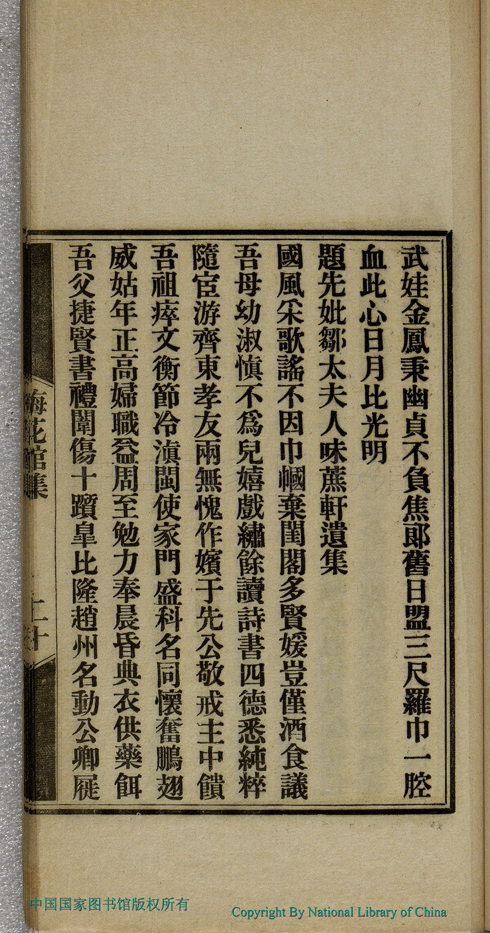 武娃金鳳秉幽貞不負焦郎舊日盟三尺羅巾一腔
血此心日月比光明
題先妣鄒太夫人味蔗軒遺集
國風采歌謠不因巾幗棄閨閣多賢媛豈僅酒食議
吾母幼淑慎不為兒嬉戲繡餘讀詩書四德悉純粹
隨宦游齊東孝友兩無愧作嬪于先公敬戒主中饋
吾祖瘁文衡節冷滇閩使家門盛科名同懷奮鵬翅
威姑年正高婦職益周至勉力奉晨昏典衣供藥餌
吾父捷賢書禮闈傷十躓皐比隆趙州名動公卿屣
梅花館集
二十
中国国家图书馆版权所有
Copyright By National Library of China